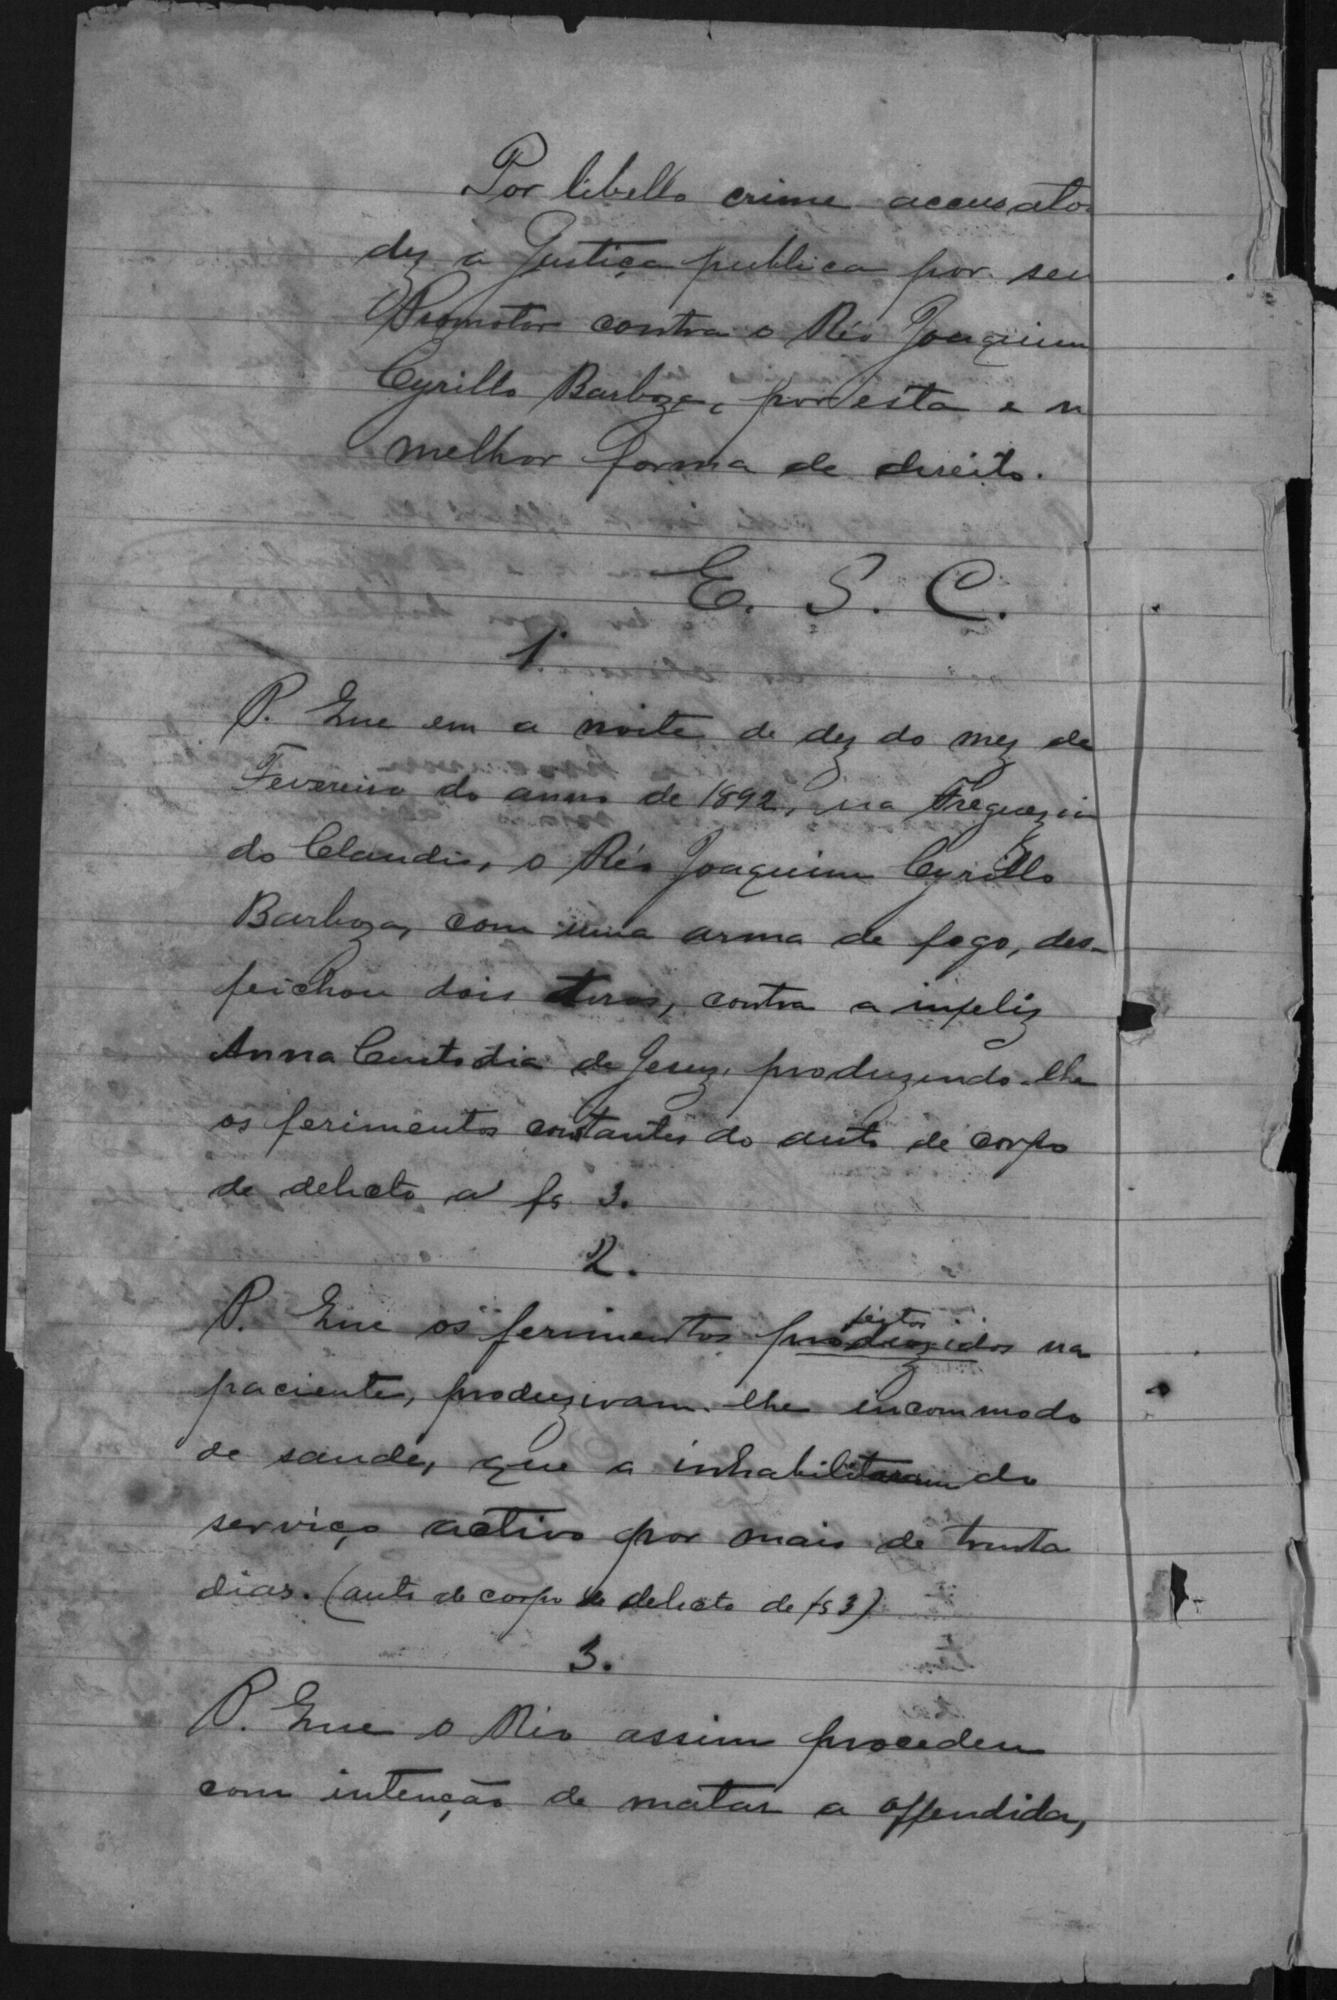 Por libello crime accusato
diz a Justiça publica por seu
Promotor contra o Réo Joaquim
Cyrillo Barboza, por esta e n
melhor forma de direito.
E. S. C.
1.
P. Que em a noite de dez do mez de
Fevereiro do anno de 1892, na Freguezia
do Claudio, o Réo Joaquim Cyrillo
Barboza, com uma arma de fogo, des-
feichou dois tiros, contra a infeliz
Anna Custodia de Jesuz, produzindo-lhe
os ferimentos constantes do auto de corpo
de delicto a fs 3.
2.
P. Que os ferimentos produzidos feitos na
paciente, produziram-lhe incommodo
de saude, que a inhabilitaram do
serviço activo por mais de trinta
dias. (auto de corpo de delicto de fs 3)
3.
P. Que o Réo assim procedeu
com intenção de matar a offendida,